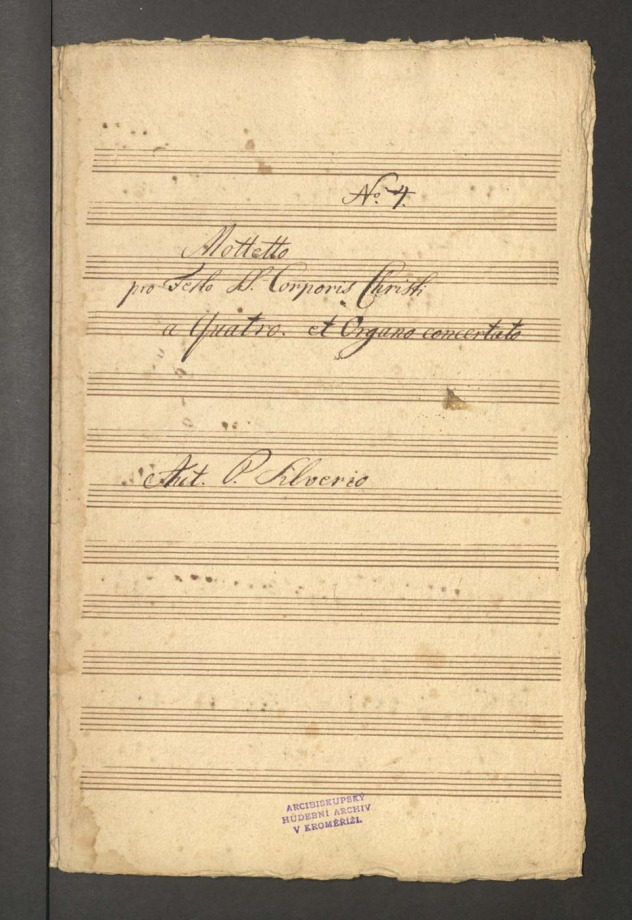 No. 4.
Mottetto
pro Festo D. Corporis Christi
a Quatro. et Organo concertato
Aut. P. Silverio
ARCIBISKUPSKÝ
HUDEBNÍ ARCHIV
V KROMĚŘÍŽI.